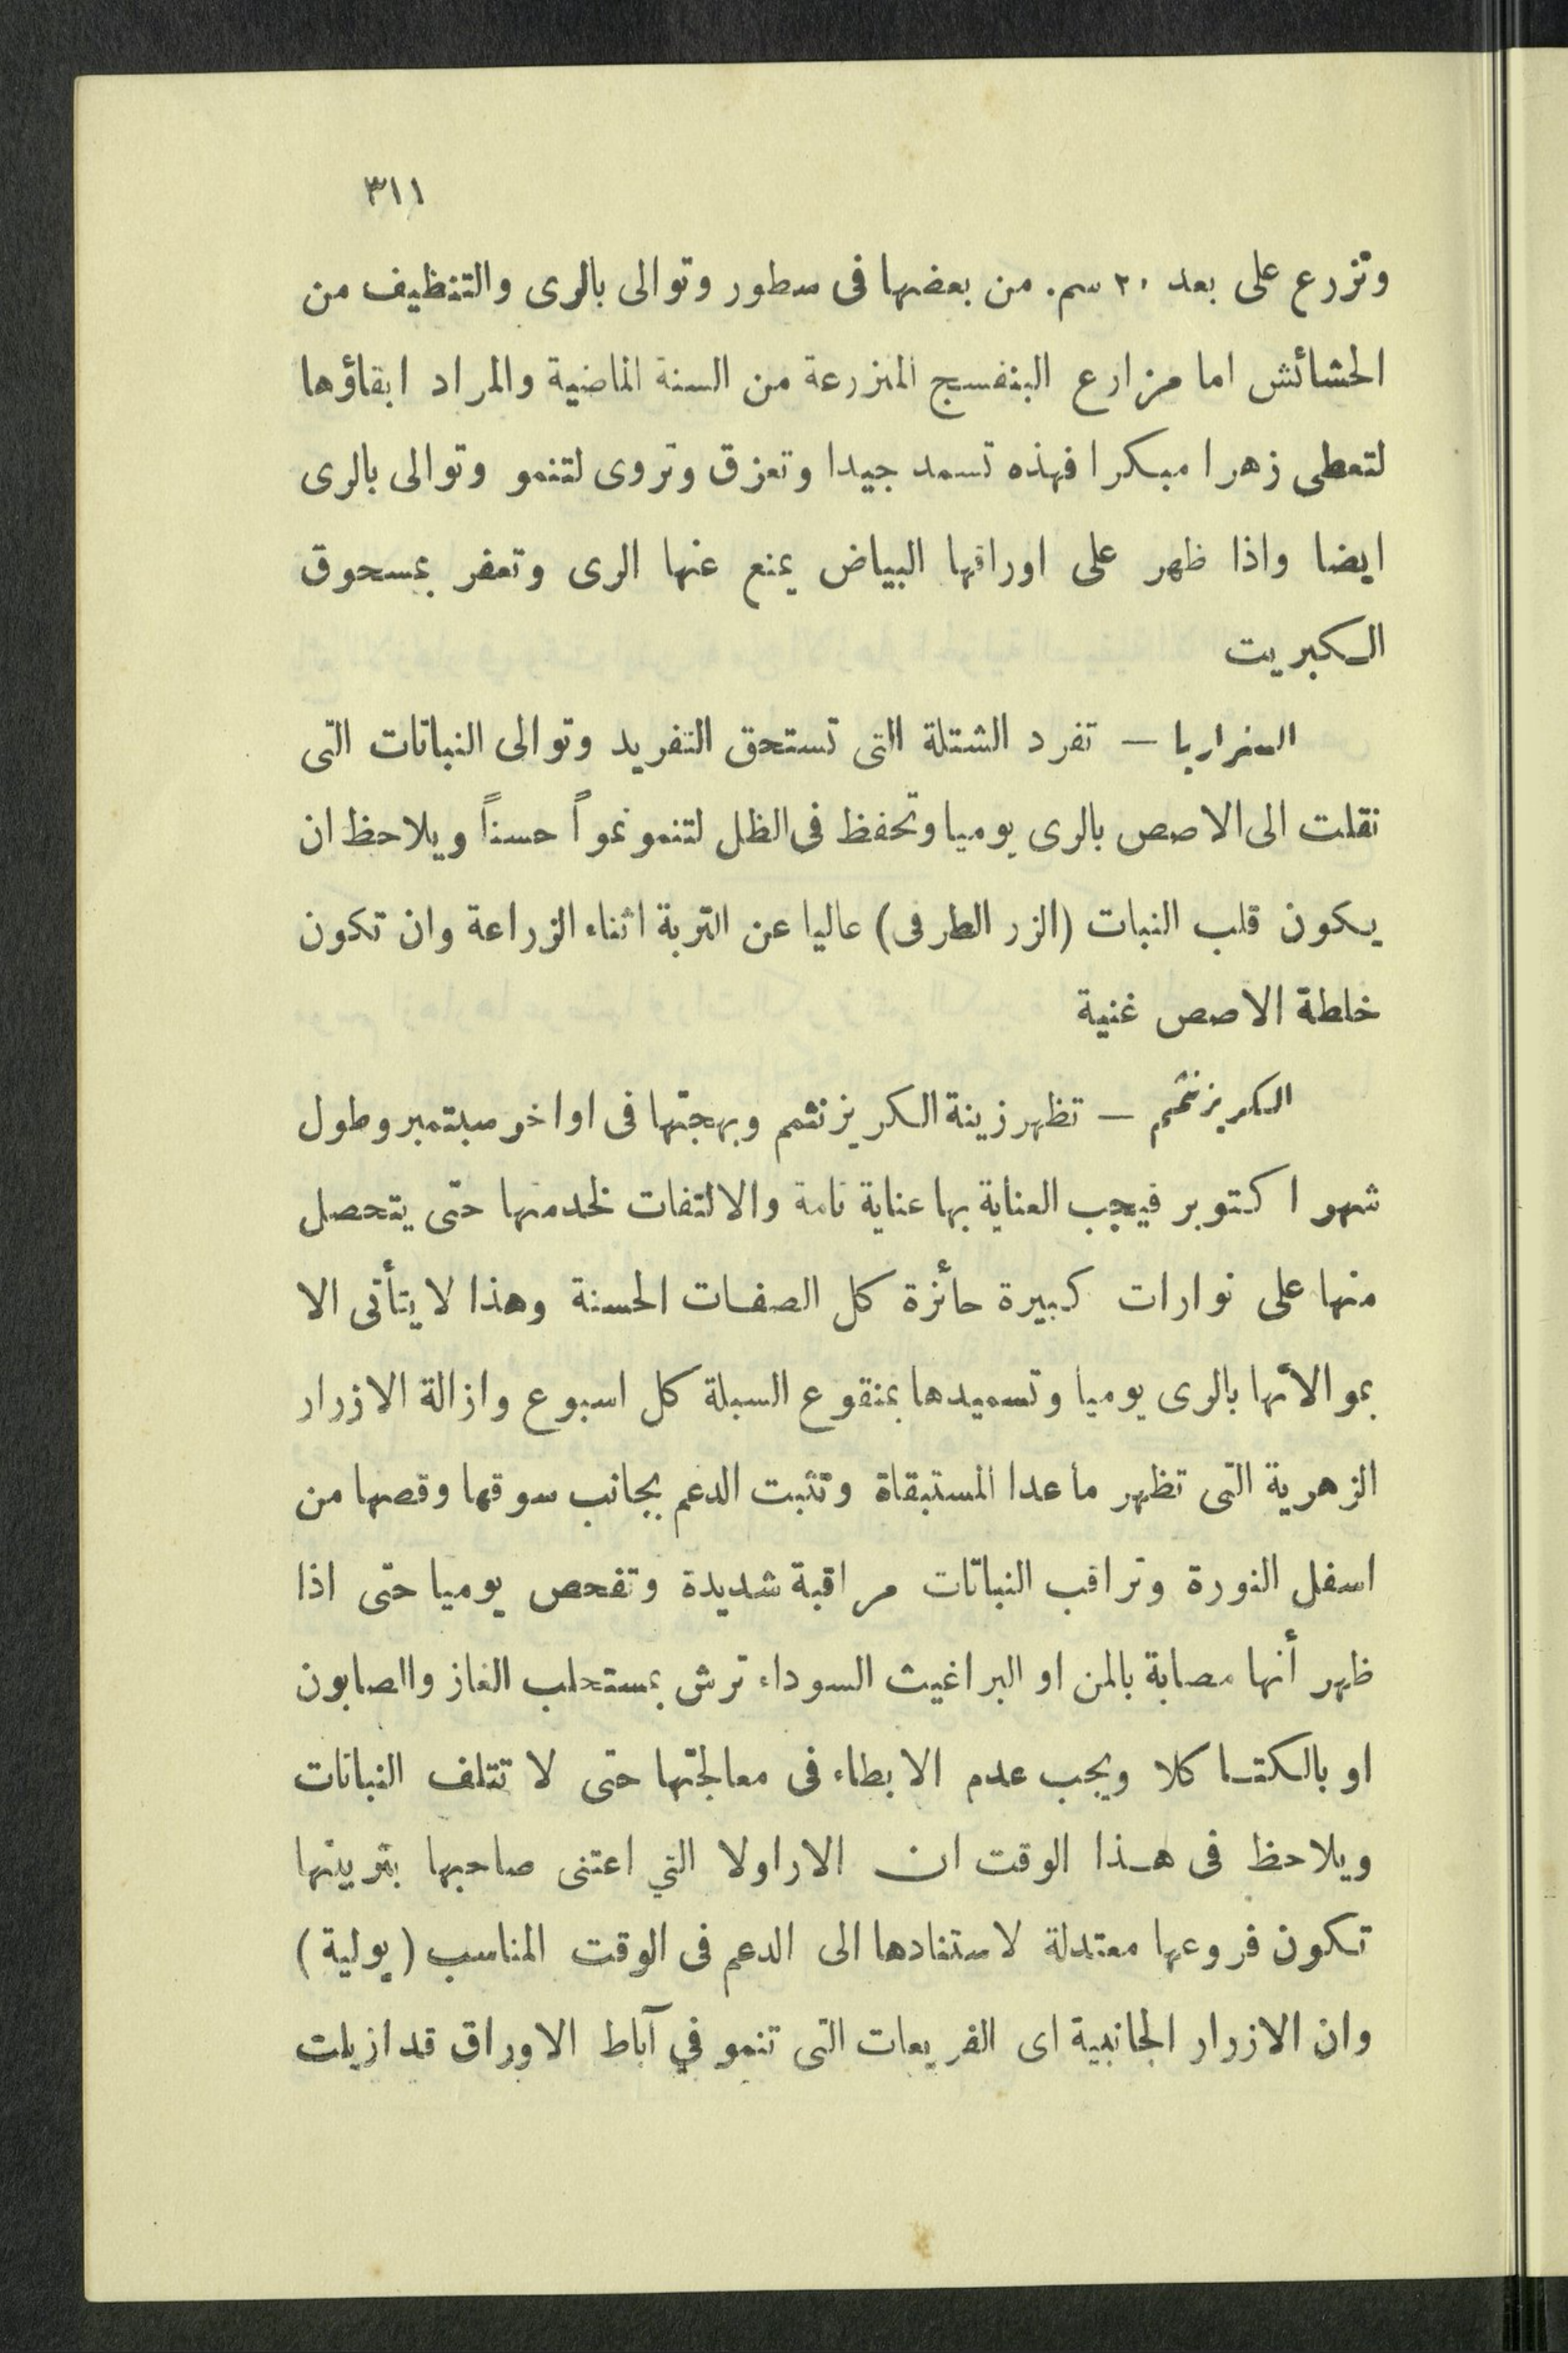 ٣١١
وتزرع على بعد ٢٠ سم. من بعضها فى سطور وتوالى بالرى والتنظيف من
الحشائش اما مزارع البنفسج المنزرعة من السنة الماضية والمراد ابقاؤها
لتعطى زهرا مبكرا فهذه تسمد جيدا وتعزق وتروى لتنمو وتوالى بالرى
ايضا واذا ظهر على اوراقها البياض يمنع عنها الرى وتعفر بمسحوق
الكبريت
السنراريا — تفرد الشتلة التى تستحق التفريد وتوالى النباتات التى
نقلت الى الاصص بالرى يوميا وتحفظ فى الظل لتنمو نمواً حسناً ويلاحظ ان
يكون قلب النبات (الزر الطرفى) عاليا عن التربة اثناء الزراعة وان تكون
خلطة الاصص غنية
الكريزنثمم — تظهر زينة الكريزنثمم وبهجتها فى اواخر سبتمبر وطول
شهر اكتوبر فيجب العناية بها عناية تامة والالتفات لخدمتها حتى يتحصل
منها على نوارات كبيرة حائزة كل الصفات الحسنة وهذا لا يتأتى الا
بموالأتها بالرى يوميا وتسميدها بمنقوع السبلة كل اسبوع وازالة الازرار
الزهرية التى تظهر ما عدا المستبقاة وتثبت الدعم بجانب سوقها وقصها من
اسفل النورة وتراقب النباتات مراقبة شديدة وتفحص يوميا حتى اذا
ظهر أنها مصابة بالمن او البراغيث السوداء ترش بمستحلب الغاز والصابون
او بالكتاكلا ويجب عدم الابطاء فى معالجتها حتى لا تتلف النباتات
ويلاحظ فى هذا الوقت ان الاراولا التي اعتنى صاحبها بتربيتها
تكون فروعها معتدلة لاستنادها الى الدعم فى الوقت المناسب (يولية)
وان الازرار الجانبية اى الفريعات التى تنمو في آباط الاوراق قد ازيلت